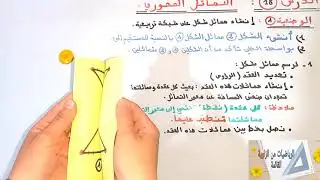 الدرس 18: التماثل المحوري
الوضعية ①: إنشاء مماثل شكل على شبكة تربيعية.
1) أنشئ الشكل ② مماثل الشكل ① بالنسبة للمستقيم
2) بواسطة الطي تأكد من أن الشكلين ① و ② متماثلان
1 - لرسم مماثل شكل:
تحديد العقد (الرؤوس)
إنشاء مماثلات هذه العقد: بحيث كل عقدة ومماثلتها
لهما نفس المسافة عن محور التماثل.
ملاحظة: كل عقدة (نقطة) تنتمي إلى محور
مماثلتها تنطبق عليها.
نصل بخط بين مماثلات هذه العقد.
①
الرياضيات من الزاوية
القائمة